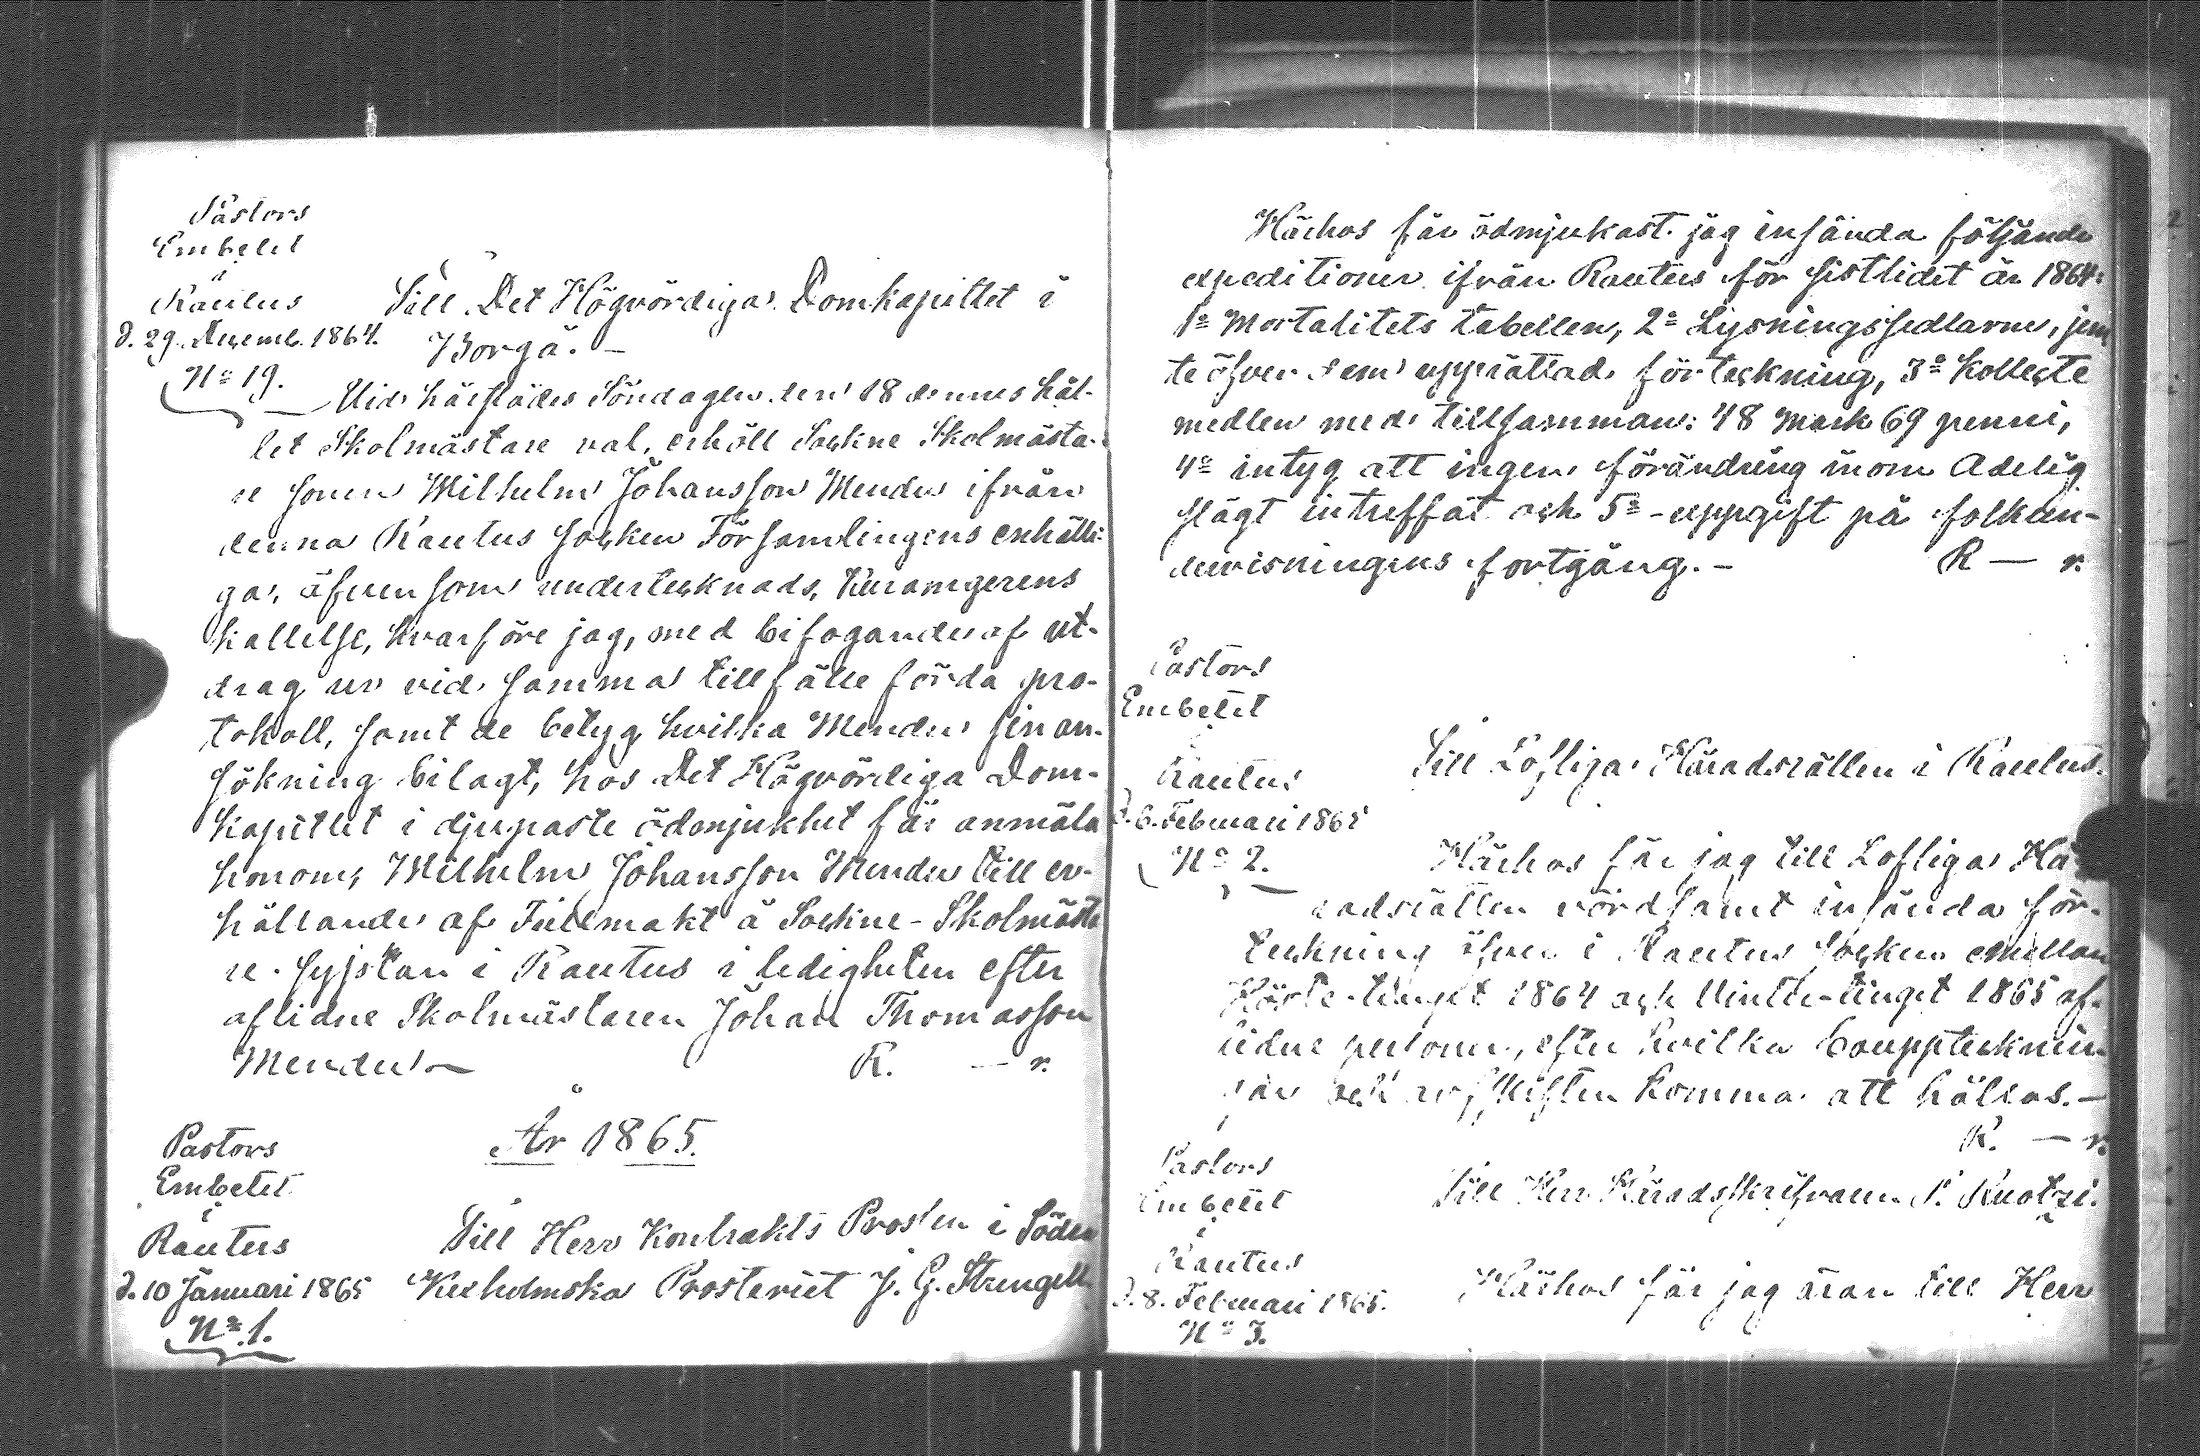 Pastors
Embetet
i
Rautus
d. 29. Decemb. 1864.
No 19.
Till Det Högvördiga Domkapitlet i
Borgå. –
Vid härstädes Söndagen den 18 dennes hål-
let Skolmästare val, erhöll Sockne Skolmästa-
re sonen Wilhelm Johansson Mender ifrån
denna Rautus socken Församlingens enhälli-
ga, äfvensom undertecknads,
kallelse, hvarföre jag, med bifogande af ut-
drag ur vid samma tillfälle förda pro-
tokoll, samt de betyg hvilka Mender sin an-
sökning bilagt, hos Det Högvördiga Dom-
kapitlet i djupaste ödmjukhet får anmäla
honom, Wilhelm Johansson Mender till er-
hållande af Fullmakt å Sockne-Skolmästa
re sysslan i Rautus i ledigheten efter
aflidne Skolmästaren Johan Thomasson
Mender. R. — r.
År 1865.
Pastors
Embetet
i
Rautus
d. 10 Januari 1865
No 1.
Till Herr Kontrakts Prosten i Södra
Kexholmska Prosteriet J. G. Strengell
Härhos får ödmjukast jag insända följande
expeditioner ifrån Rautus för sistlidet år 1864:
1o Mortalitets tabellen, 2o Lysningssedlarne, jem
te öfver dem upprättad förteckning, 3o Kollekte
medlen med tillsamman: 48 Mark 69 penni,
4o intyg att ingen förändring inom Adelig
slägt inträffat och 5o uppgift på folkun-
dervisningens fortgång. – R — r.
Pastors
Embetet
i
Rautus
d. 6. Februari 1865
No 2.
Till Lofliga Häradsrätten i Rautus.
Härhos får jag till Lofliga Hä-
radsrätten vördsamt insända för-
teckning öfver i Rautus socken emellan
Höste-tinget 1864 och Vinter-tinget 1865 af-
lidne personer, efter hvilka bouppteknin-
gar och arfskiften komma att hållas. –
R. — r.
Pastors
Embetet
i
Rautus
d. 8. Februari 1865.
No 3.
Till Herr Häradsskrifvaren
Härhos får jag äran till Herr